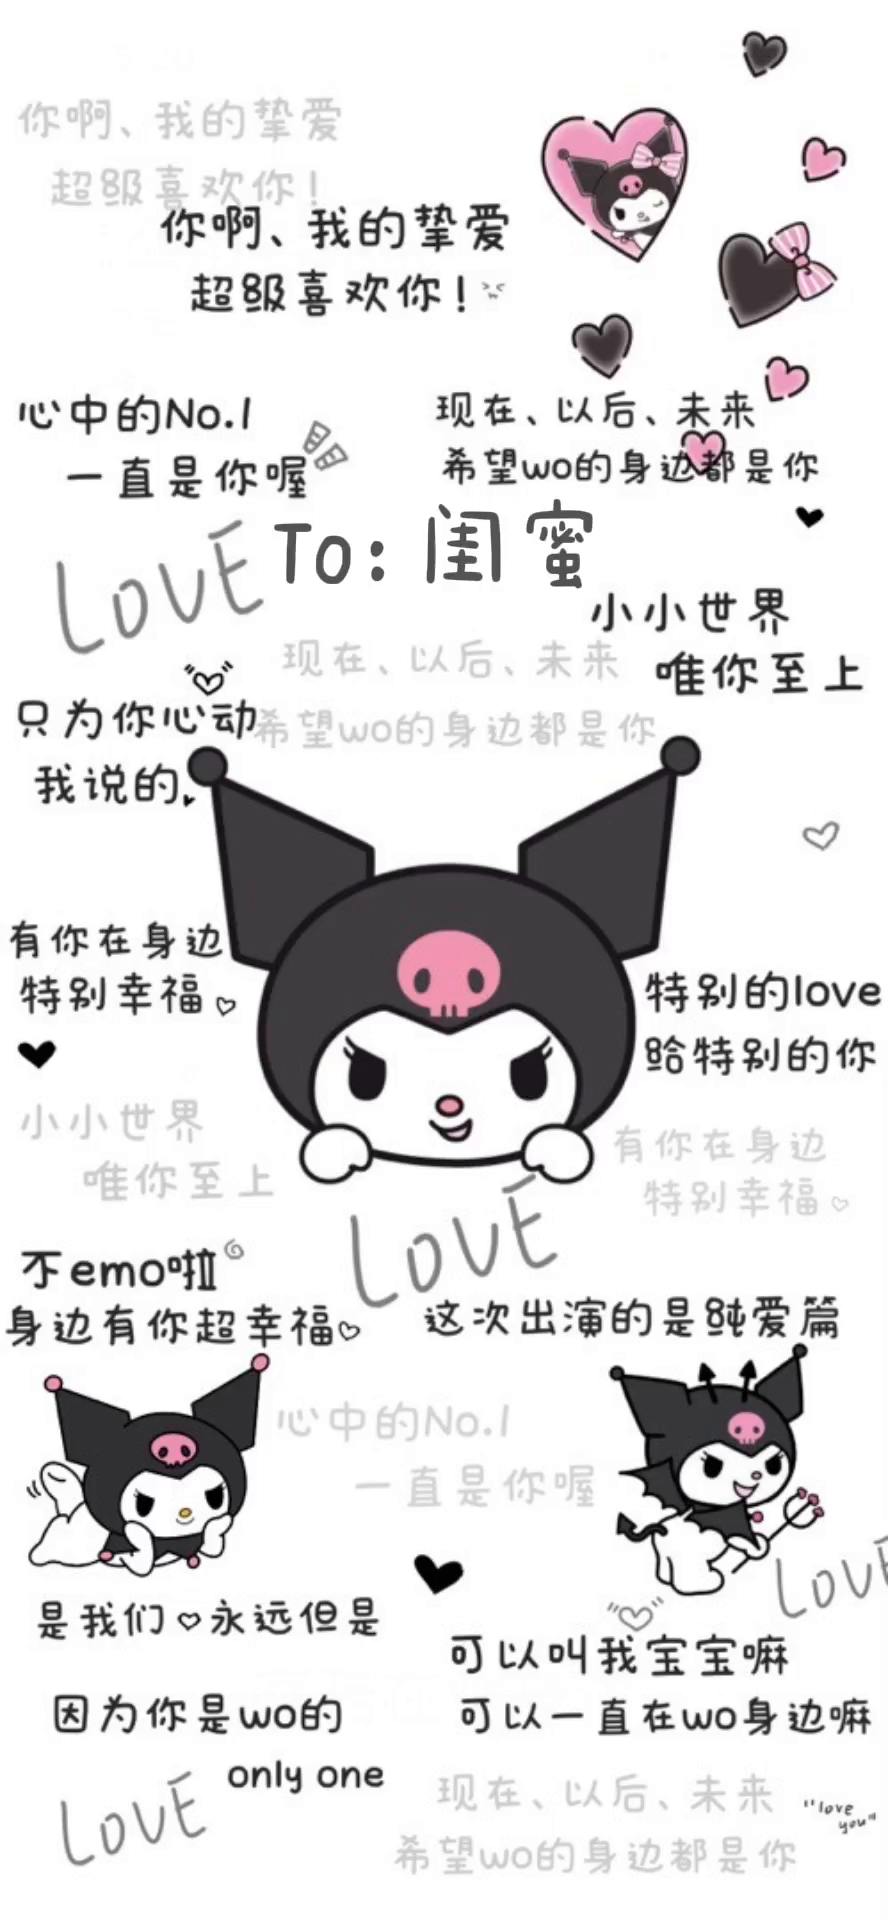 你啊、我的挚爱
超级喜欢你！
你啊、我的挚爱
超级喜欢你！
心中的No.1
一直是你喔
现在、以后、未来
希望wo的身边都是你
LOVE
To: 闺蜜
小小世界
唯你至上
现在、以后、未来
希望wo的身边都是你
只为你心动
我说的
有你在身边
特别幸福
特别的love
给特别的你
小小世界
唯你至上
有你在身边
特别幸福
LOVE
不emo啦
身边有你超幸福
这次出演的是纯爱篇
心中的No.1
一直是你喔
LOVE
是我们♡永远但是
可以叫我宝宝嘛
可以一直在wo身边嘛
因为你是wo的
only one
LOVE
现在、以后、未来
希望wo的身边都是你
"love
you"